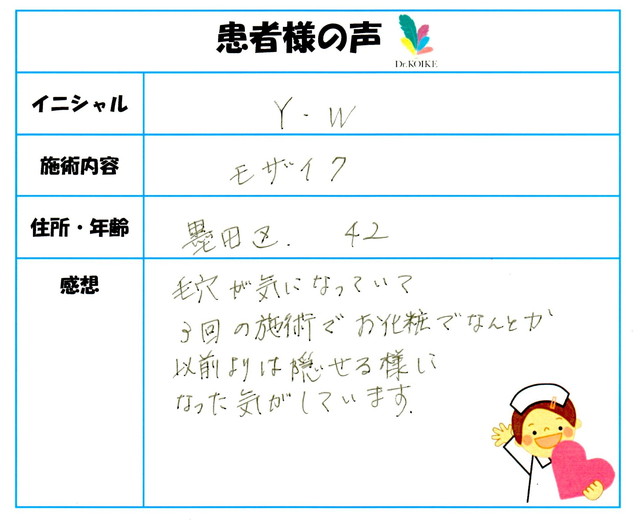 患者様の声
Dr.KOIKE
イニシャル Y・W
施術内容 モザイク
住所・年齢 墨田区. 42
感想
毛穴が気になっていて
3回の施術でお化粧でなんとか
以前よりは隠せる様に
なった気がしています.